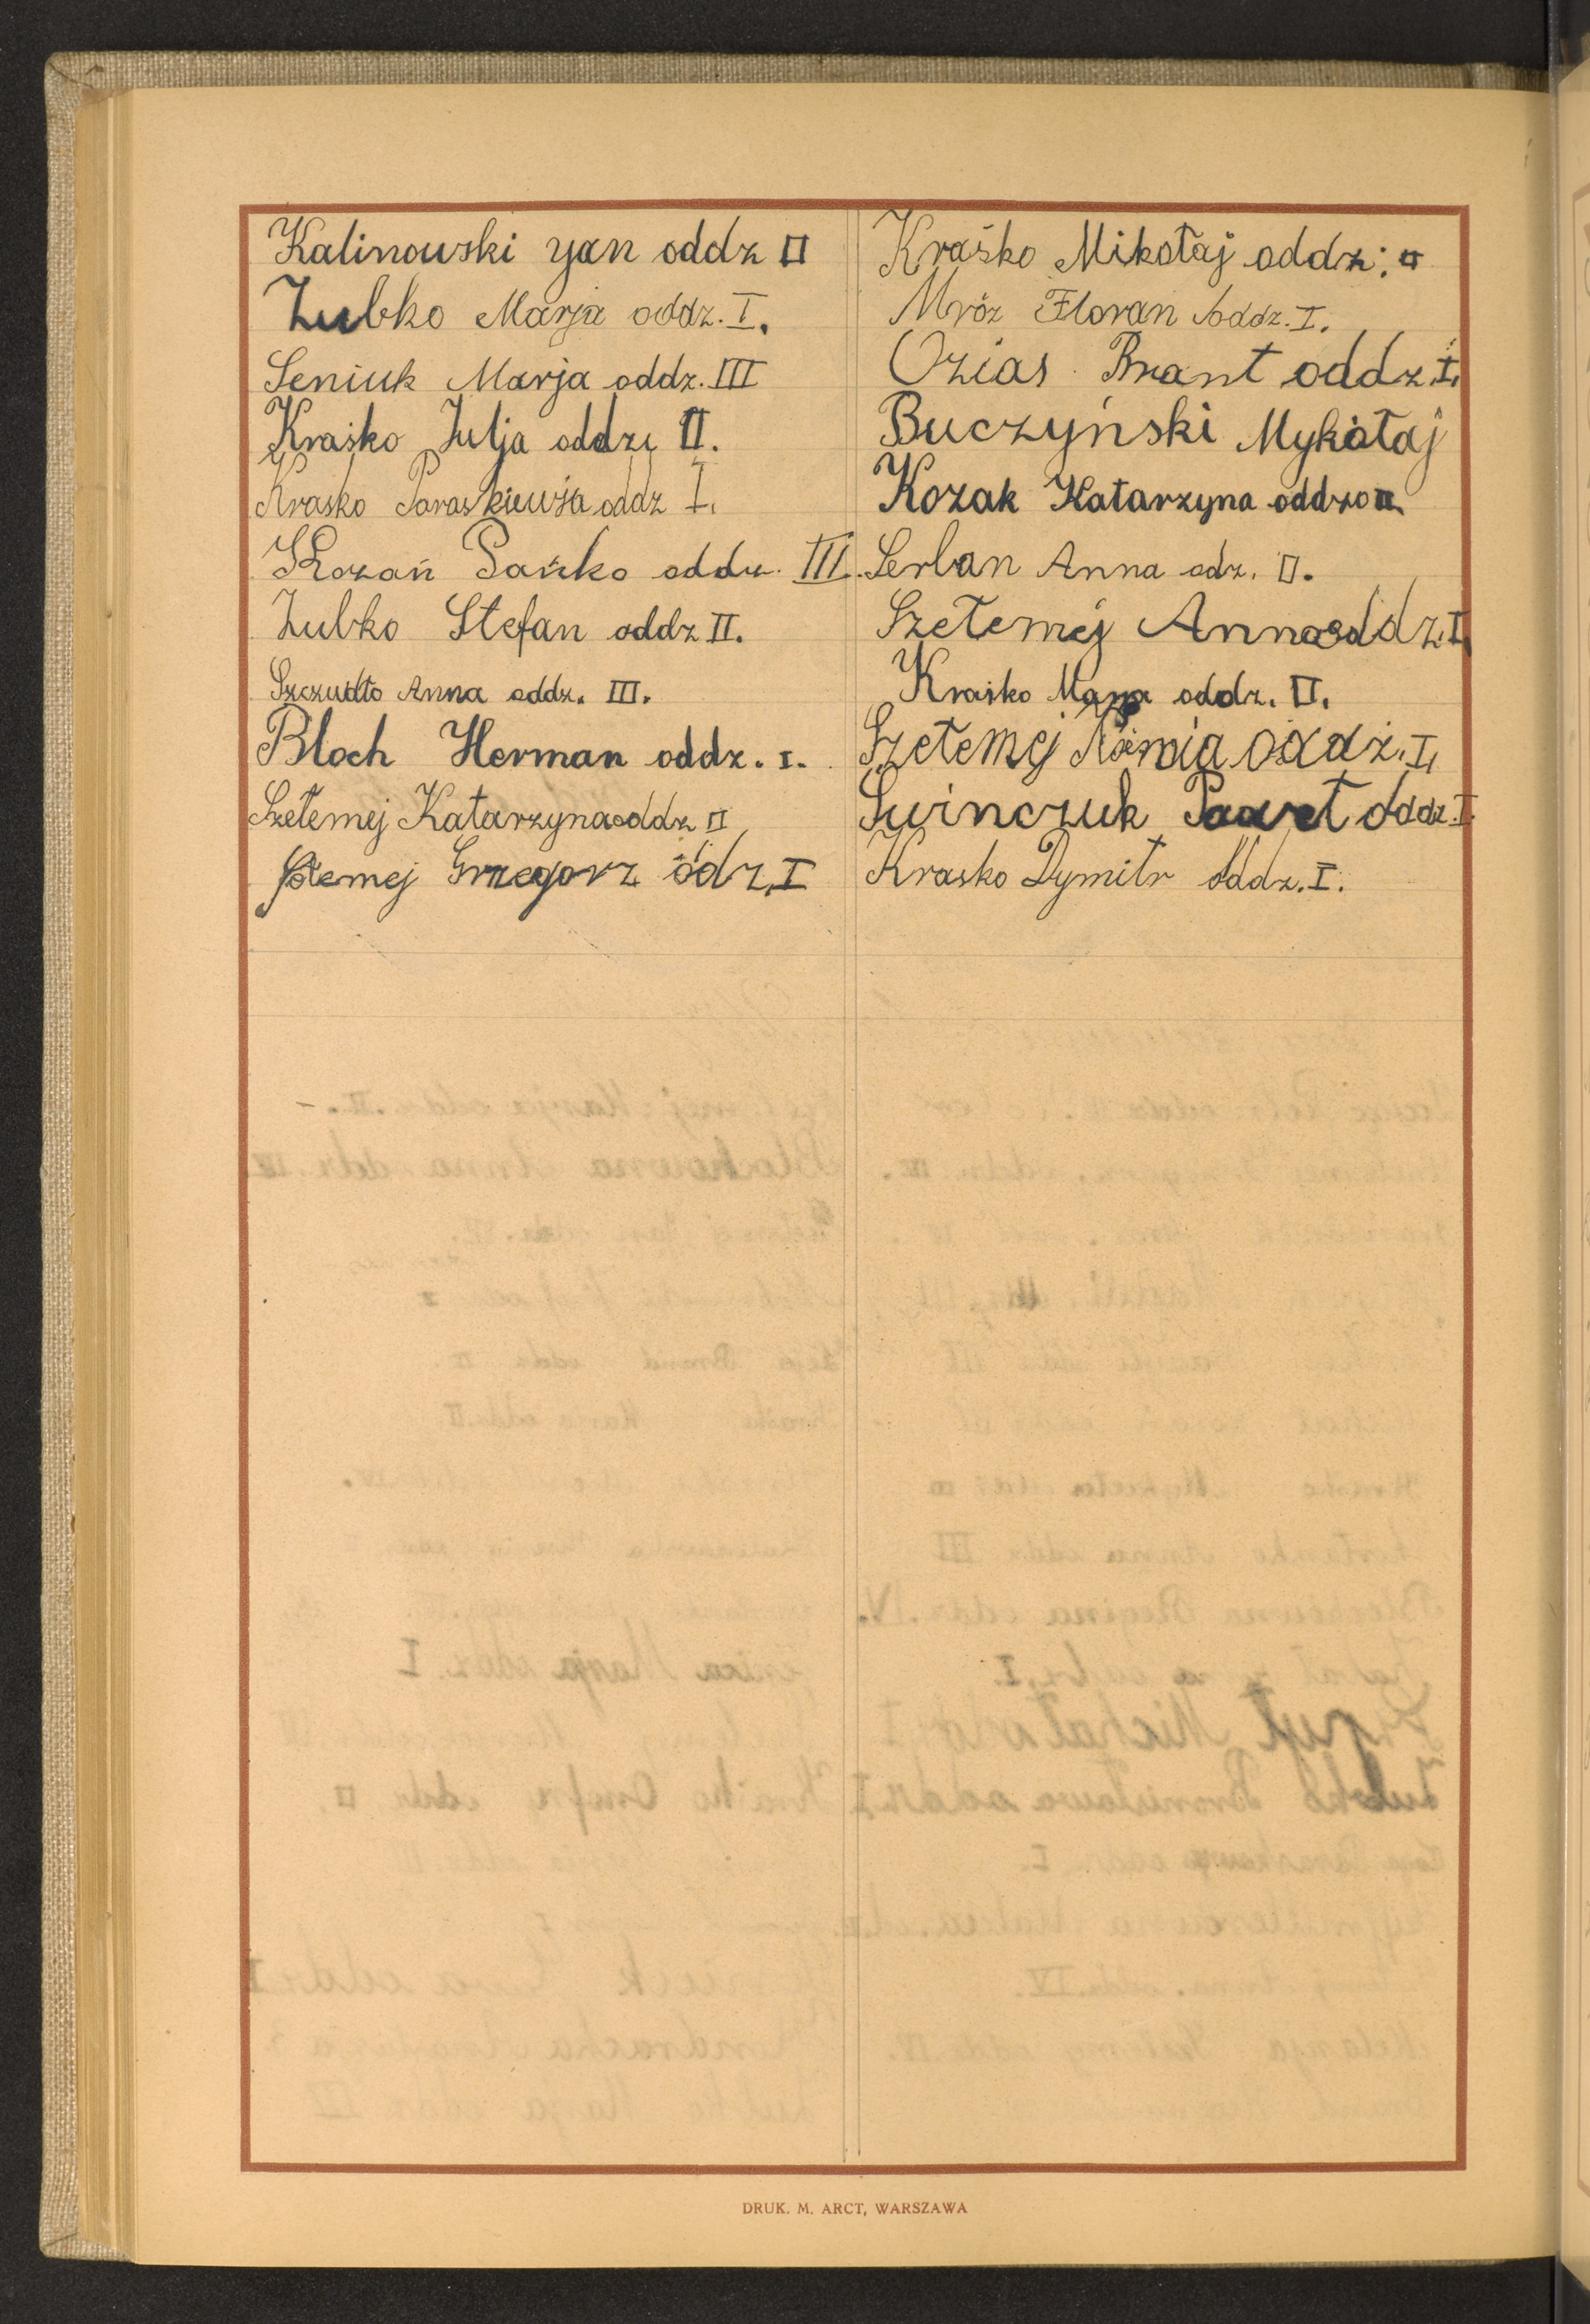 Kalinowski Jan oddz II
Zubko Marja oddz. I.
Seniuk Marja oddz. III
Kraśko Julja oddz. II.
Krasko Paraskiewja oddz I.
Kozań Pańko oddz. III.
Zubko Stefan oddz II.
Szczudło Anna oddz. III.
Bloch Herman oddz. I.
Szełemej Katarzyna oddz II
Grzegorz odz, I
Kraśko Mikołaj oddz: II
Mróz Floran oddz. I.
Ozias Brant oddz, I,
Buczyński Mykołaj
Kozak Katarzyna oddz II.
Serban Anna odz. II.
Szełemej Anna oddz. I.
Kraśko Marja oddz. II.
Szełemej oddz. I,
Swinczuk Paweł oddz. I.
Krasko Dymitr oddz. I.
DRUK. M. ARCT, WARSZAWA